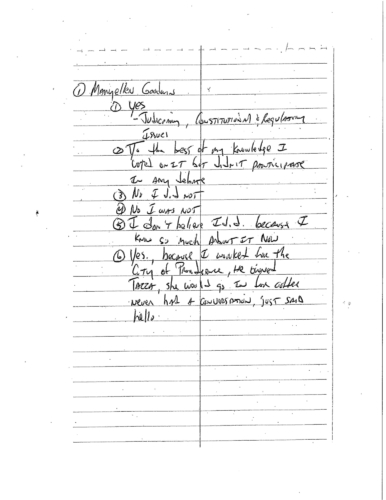 ① Maryellen Goodwin
① Yes
- Judiciary, Constitutional & Regulatory
Issues
② To the best of my knowledge I
voted on IT but didnt participate
In any debate
③ No I did not
④ No I was not
⑤ I don't believe I did. because I
know so much About IT Now
⑥ Yes, because I worked for the
City of Providence, He owned
Tazza, she would go In for coffee
never had a conversation, just said
hello.